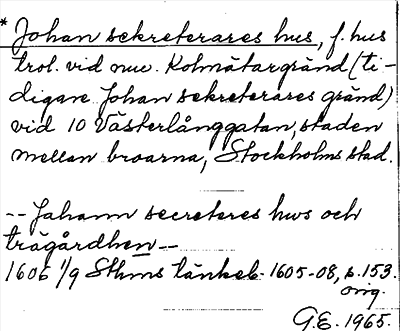 * Johan sekreterares hus, f. hus
trol. vid nuv. Kolmätargränd (ti-
digare Johan sekreterares gränd)
vid 10 Västerlånggatan, staden
mellan broarna, Stockholms stad.
-- Johann secreteres hws och
trägårdhen --
1605 1/9 Sthms tänkeb. 1605-08, s. 153.
orig.
G.E. 1965.